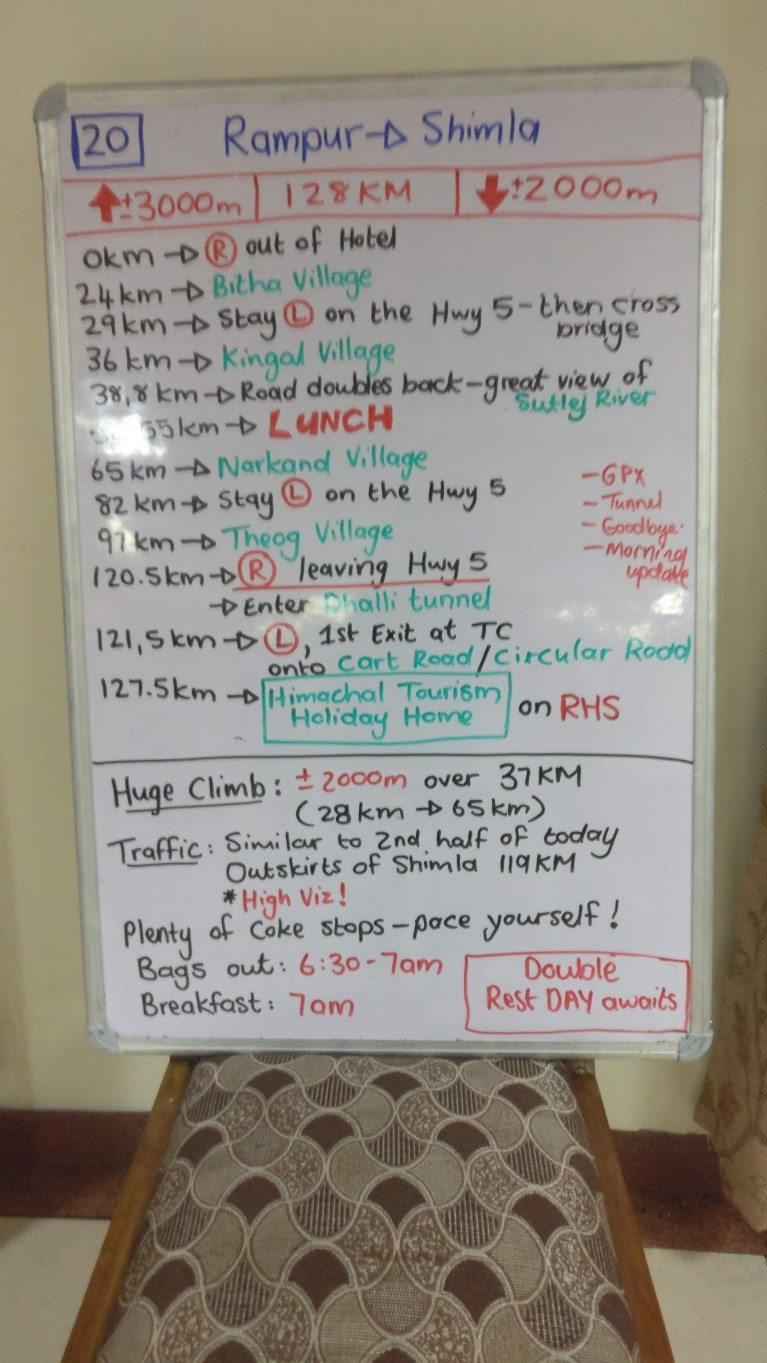 20 Rampur → Shimla
↑ ±3000m | 128KM | ↓ ±2000m
0km → Ⓡ out of Hotel
24km → Bitha Village
29km → Stay Ⓛ on the Hwy 5 - then cross
bridge
36 km → Kingal Village
38,8 km → Road doubles back - great view of
Sutlej River
55km → LUNCH
65 km → Narkand Village
82 km → Stay Ⓛ on the Hwy 5
97km → Theog Village
120.5km → Ⓡ leaving Hwy 5
→ Enter Dhalli tunnel
121,5 km → Ⓛ, 1st Exit at TC
onto Cart Road/Circular Road
127.5km → Himachal Tourism
Holiday Home on RHS
- GPX
- Tunnel
- Goodbye
- Morning
update
Huge Climb: ± 2000m over 37KM
(28km → 65km)
Traffic: Similar to 2nd half of today
Outskirts of Shimla 119KM
* High Viz!
Plenty of Coke stops - pace yourself!
Bags out: 6:30 - 7am
Breakfast: 7am
Double
Rest DAY awaits